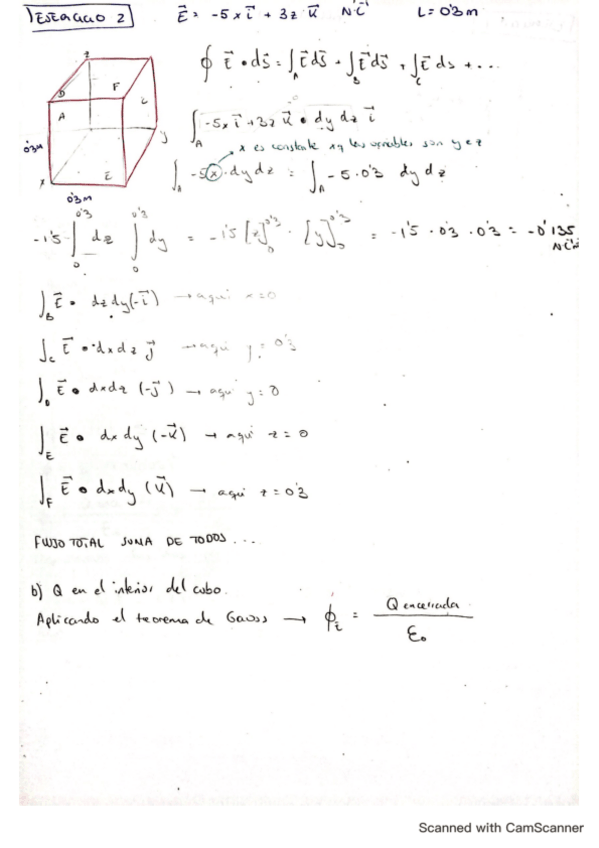 EJERCICIO 2   E⃗ = -5x i⃗ + 3z k⃗   N·C⁻¹   L = 0'3 m
∮ E⃗ • ds⃗ = ∫_A E⃗ ds⃗ + ∫_B E⃗ ds⃗ + ∫_C E⃗ ds + ...
z
D F
A C
y
0'3m
x E
0'3m
∫_A -5x i⃗ + 3z k⃗ • dy dz i⃗
x es constante xq las variables son y e z
∫_A -5(x) · dy dz = ∫_A -5 · 0'3 dy dz
-1'5 ∫₀^0'3 dz ∫₀^0'3 dy = -1'5 [z]₀^0'3 · [y]₀^0'3 = -1'5 · 0'3 · 0'3 = -0'135
∫_B E⃗ • dz dy (-i⃗) → aquí x = 0
∫_C E⃗ • dx dz j⃗ → aquí y = 0'3
∫_D E⃗ • dx dz (-j⃗) → aquí y = 0
∫_E E⃗ • dx dy (-k⃗) → aquí z = 0
∫_F E⃗ • dx dy (k⃗) → aquí z = 0'3
FLUJO TOTAL SUMA DE TODOS...
b) Q en el interior del cubo.
Aplicando el teorema de Gauss → ϕ_E = Q encerrada / ε₀
Scanned with CamScanner